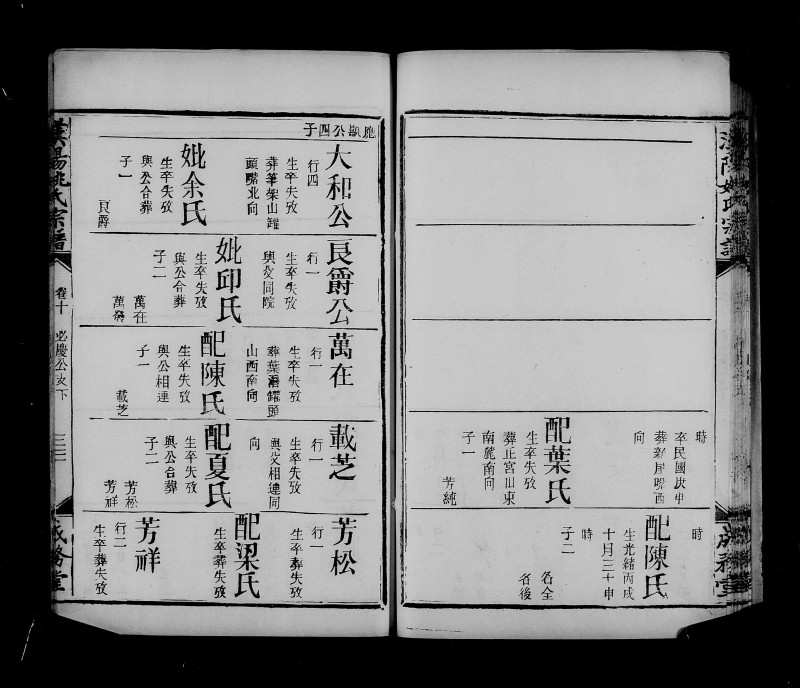 時
卒民國庚申
向
配葉氏
生卒失攷
葬正宮山東
南麓南向
子一
芳純
時
配陳氏
生光緒丙戌
十月三十申
時
子二
名全
名後
公四子
大和公
行四
生卒失攷
葬筆架山鑵
頭嘴北向
妣余氏
生卒失攷
與公合葬
子一
良爵
良爵公
行一
生卒失攷
與父同院
妣邱氏
生卒失攷
與公合葬
子二
萬在
萬在
行一
生卒失攷
山西南向
配陳氏
生卒失攷
與公相連
子一
載芝
載芝
行一
生卒失攷
與父相連同
向
配夏氏
生卒失攷
與公合葬
子二
芳松
芳祥
芳松
行一
生卒葬失攷
配梁氏
生卒葬失攷
芳祥
行二
生卒葬失攷
漢陽姚氏宗譜
卷十
必慶公支下
三三
成務堂